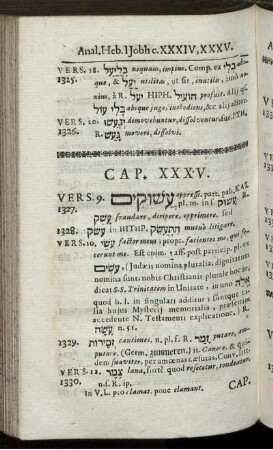 Anal. Heb. IJobh c. XXXIV, XXXV.
VERS. 18. בליעל nequam, impius. Comp. ex בלי absque,
1325. & יעל utilitas, ut sit, inutilis,
à R. יעל HIPH. הועיל profuit. Alii qs.
בלי עול absque jugo, inobediens, & c alii aliter.
VERS. 20. יגעשו dimovebuntur, dissolventur, fut. PYH.
1326. R. געש moveri, dissolvi.
CAP. XXXV.
VERS. 9. עשוקים oppressi. part. pah. KAL
1327. pl. m. in f. עשוק R.
עשק fraudare, decipere, opprimere. sed
1328. עשק in HITHP. התעשק mutuò litigare.
VERS. 10. עשי factor meus: propr. facientes me, qui fecerunt
me. Est enim י aff. post particip. pl.
עשים, (Judæis nomina pluralia, dignitatum
nomina sunt, nobis Christianis plurale hoc indicat
S.S. Trinitatem in Unitate, in uno
quod h. l. in singulari additur: & singularia
hujus Mysterij memorialia, præsertim
accedente N. Testamenti explicatione.) R.
עשה n. 51.
1329. זמירות cantiones, n. pl. f. R. זמר putare, amputare.
(Germ. zimmeren.) it. Canere, &
dem suaviter, per amœnas cæsuras, Conv.
VERS. 12. צמר lana, fortè quod resecetur, tondeatur,
1330. n. s. R. ip.
In V. L. pro clamat. pone clamant. CAP.